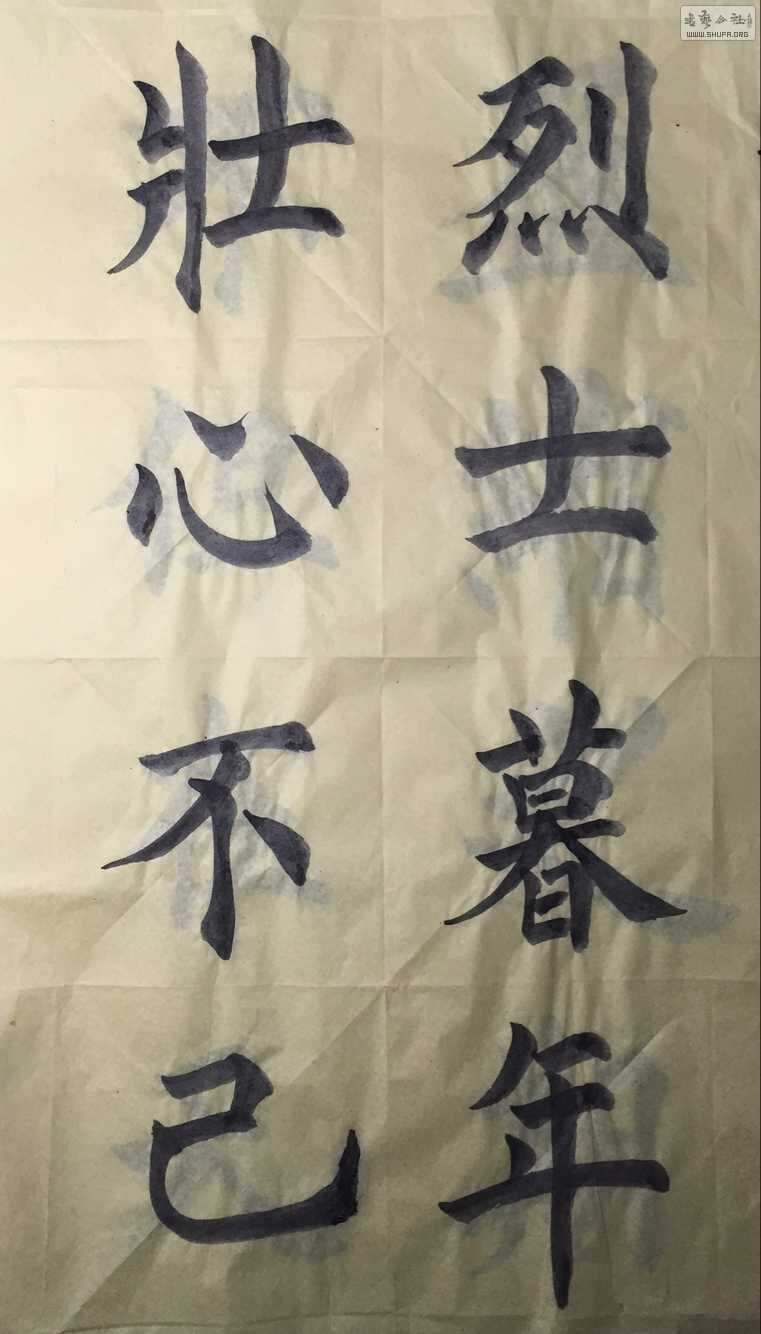 烈士暮年
壯心不己
書藝公社
WWW.SHUFA.ORG